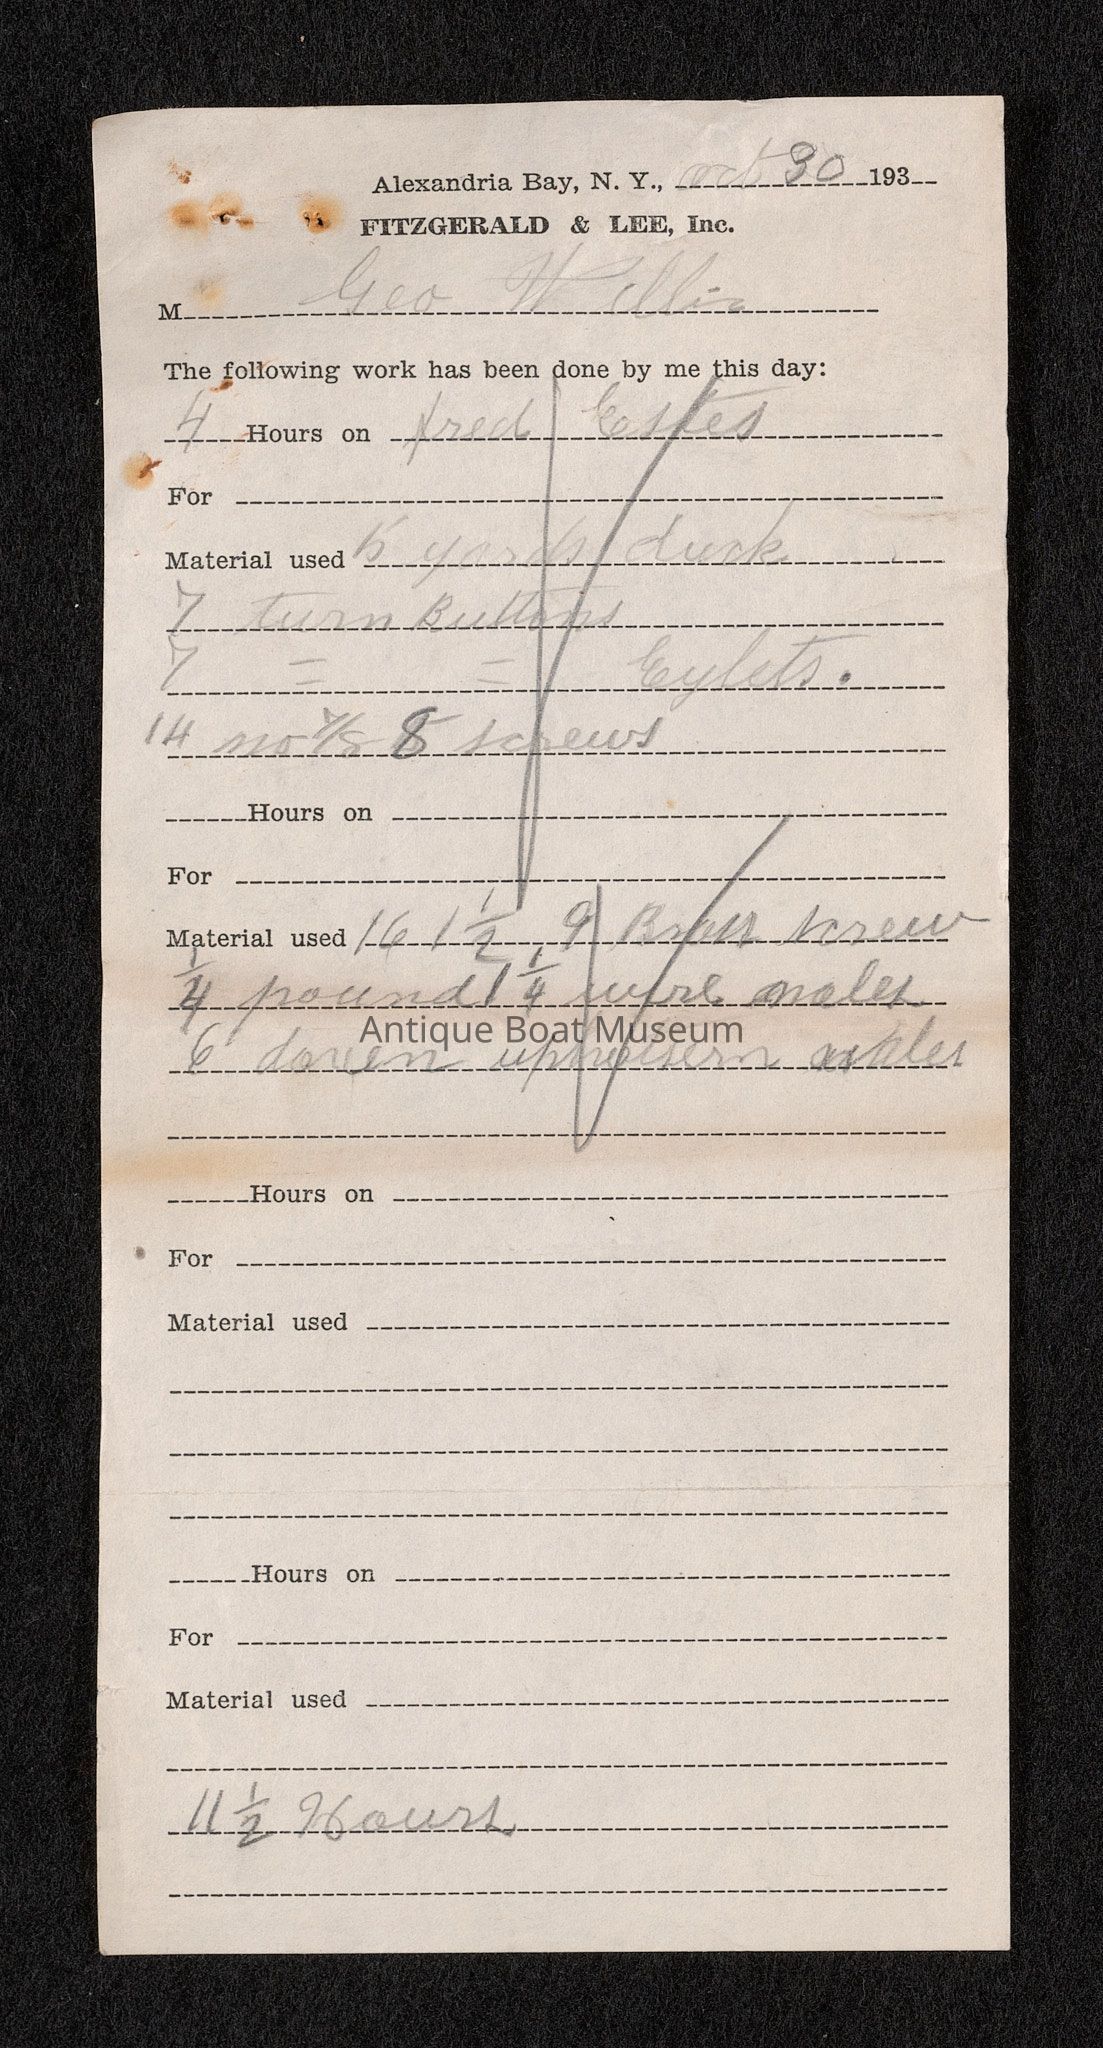 Alexandria Bay, N. Y., oct 30 193
FITZGERALD & LEE, Inc.
M Geo
The following work has been done by me this day:
4 Hours on fred Estes
For
Material used yards duck
7 turn Buttons
7 = = Eylets.
14 no 7/8 8 screws
Hours on
For
Material used 16 1 1/2 9 Brass screw
1/4 pound 1 1/4 wire nales
Antique Boat Museum
6 dozen
Hours on
For
Material used
Hours on
For
Material used
11 1/2 Hours